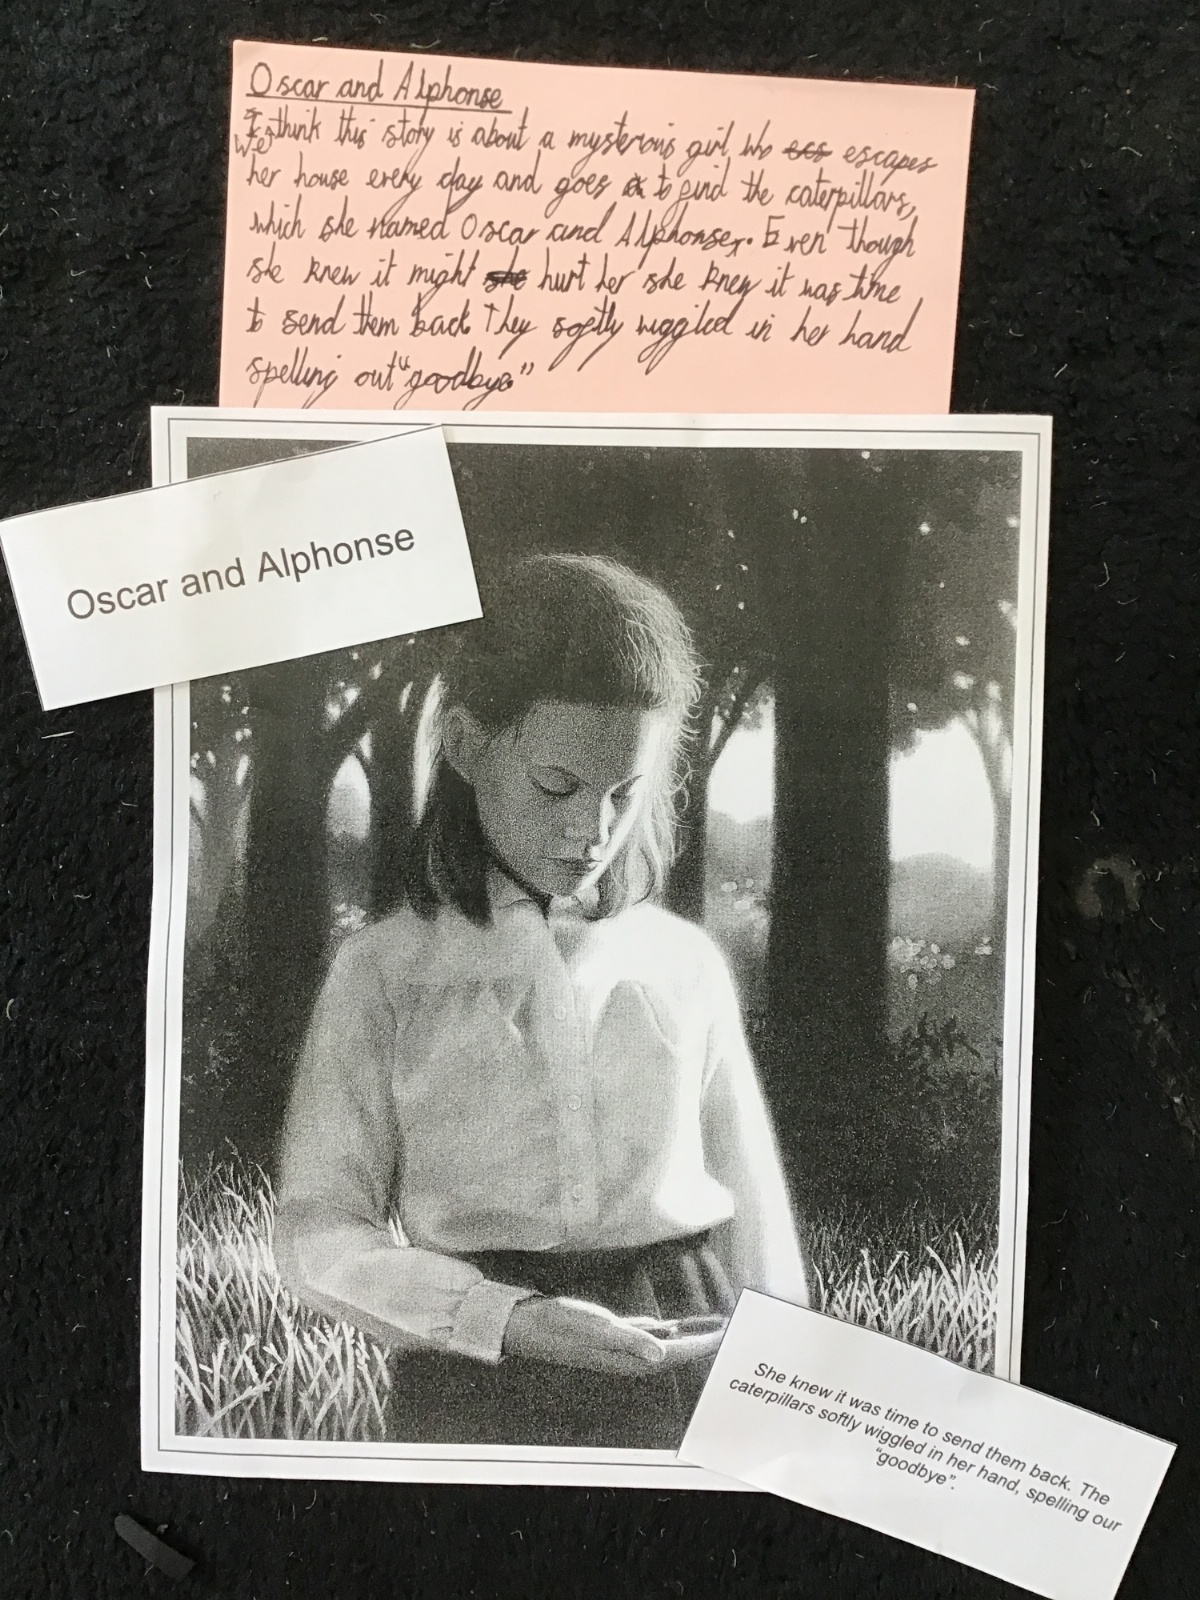 Oscar and Alphonse
I think this story is about a mysterious girl who ecs escapes
We
her house every day and goes to find the caterpillars,
which she named Oscar and Alphonse. Even though
she knew it might she hurt her she knew it was time
to send them back They softly wiggled in her hand
spelling out "goodbye"
Oscar and Alphonse
She knew it was time to send them back. The
caterpillars softly wiggled in her hand, spelling our
"goodbye".